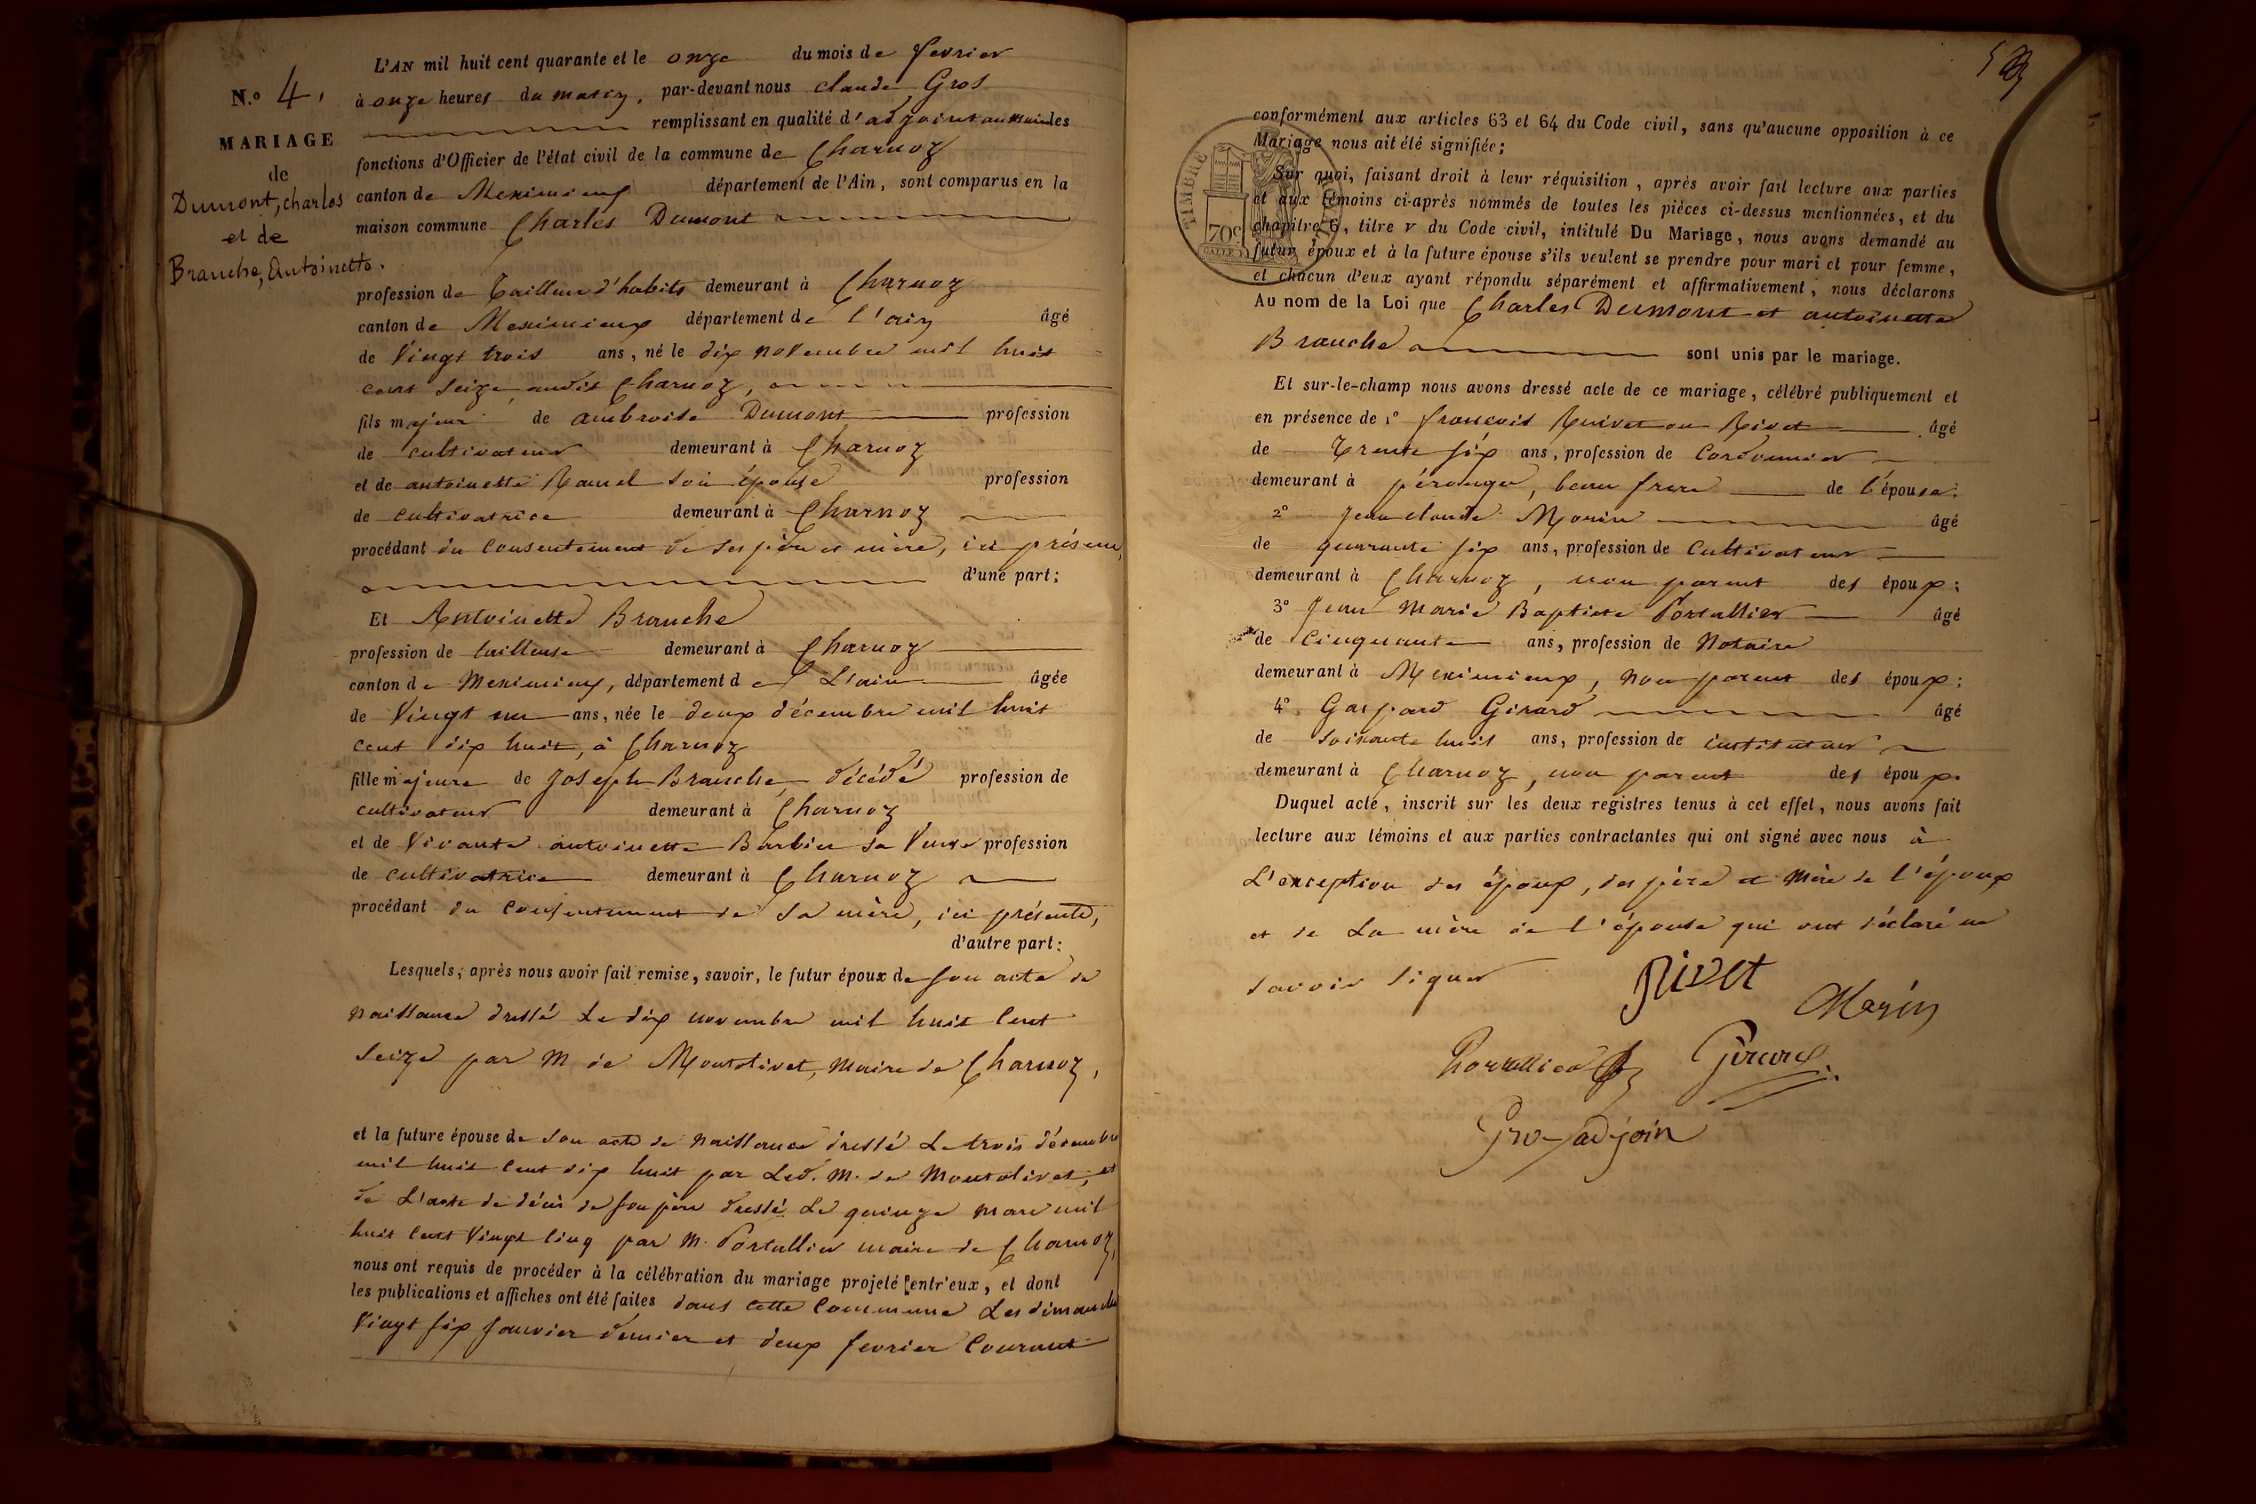 N.º 4.
MARIAGE
de
Dumont, charles
et de
Branche, Antoinette.
L'AN mil huit cent quarante et le onze du mois de fevrier
à onze heures du matin, par-devant nous claude Gros
remplissant en qualité d'adjoint au maire les
fonctions d'Officier de l'état civil de la commune de Charnoz
canton de Meximieux département de l'Ain, sont comparus en la
maison commune Charles Dumont
profession de Tailleur d'habits demeurant à Charnoz
canton de Meximieux département de l'ain âgé
de Vingt trois ans, né le dix novembre mil huit
cent seize, audit Charnoz,
fils majeur de ambroise Dumont profession
de cultivateur demeurant à Charnoz
et de antoinette son épouse profession
de cultivatrice demeurant à Charnoz
procédant du consentement de ses père et mère, ici présents,
d'une part;
Et Antoinette Branche
profession de tailleuse demeurant à Charnoz
canton de Meximieux, département de L'ain âgée
de Vingt un ans, née le deux décembre mil huit
cent dix huit, à Charnoz
fille majeure de Joseph Branche, décédé profession de
cultivateur demeurant à Charnoz
et de Vivante antoinette Barbier sa Veuve profession
de cultivatrice demeurant à Charnoz
procédant du consentement de sa mère, ici présente,
d'autre part;
Lesquels, après nous avoir fait remise, savoir, le futur époux de son acte de
naissance dressé Le dix novembre mil huit Cent
Seize par M de Montolivet, Maire de Charnoz,
et la future épouse de son acte de naissance dressé Le trois décembre
mil huit Cent dix huit par Led. M. de Montolivet, et
de L'acte de décès de son père dressé Le quinze mars mil
huit Cent Vingt Cinq par M. Portallier maire de Charnoz,
nous ont requis de procéder à la célébration du mariage projeté entr'eux, et dont
les publications et affiches ont été faites dans cette Commune Les dimanche
Vingt six Janvier dernier et deux fevrier Courant
5
TIMBRE
70c
conformément aux articles 63 et 64 du Code civil, sans qu'aucune opposition à ce
Mariage nous ait été signifiée;
Sur quoi, faisant droit à leur réquisition, après avoir fait lecture aux parties
et aux témoins ci-après nommés de toutes les pièces ci-dessus mentionnées, et du
chapitre 6, titre v du Code civil, intitulé Du Mariage, nous avons demandé au
futur époux et à la future épouse s'ils veulent se prendre pour mari et pour femme,
et chacun d'eux ayant répondu séparément et affirmativement, nous déclarons
Au nom de la Loi que Charles Dumont et antoinette
Branche sont unis par le mariage.
Et sur-le-champ nous avons dressé acte de ce mariage, célébré publiquement et
en présence de 1º françois Ruivet ou Rivet âgé
de Trente six ans, profession de Cordonnier
demeurant à pérouges, beau frere de l'épouse;
2º Jean claude Morin âgé
de quarante six ans, profession de Cultivateur
demeurant à Charnoz, non parent des époux;
3º Jean Marie Baptiste Portallier âgé
de Cinquante ans, profession de Notaire
demeurant à Meximieux, non parent des époux;
4º Gaspard Girard âgé
de soixante huit ans, profession de instituteur
demeurant à Charnoz, non parent des époux.
Duquel acte, inscrit sur les deux registres tenus à cet effet, nous avons fait
lecture aux témoins et aux parties contractantes qui ont signé avec nous à
L'exception des époux, des père et Mère de l'époux
et de La mère de l'épouse qui ont déclaré ne
savoir signer
Rivet
Morin
Portallier
Girard
Gros adjoin